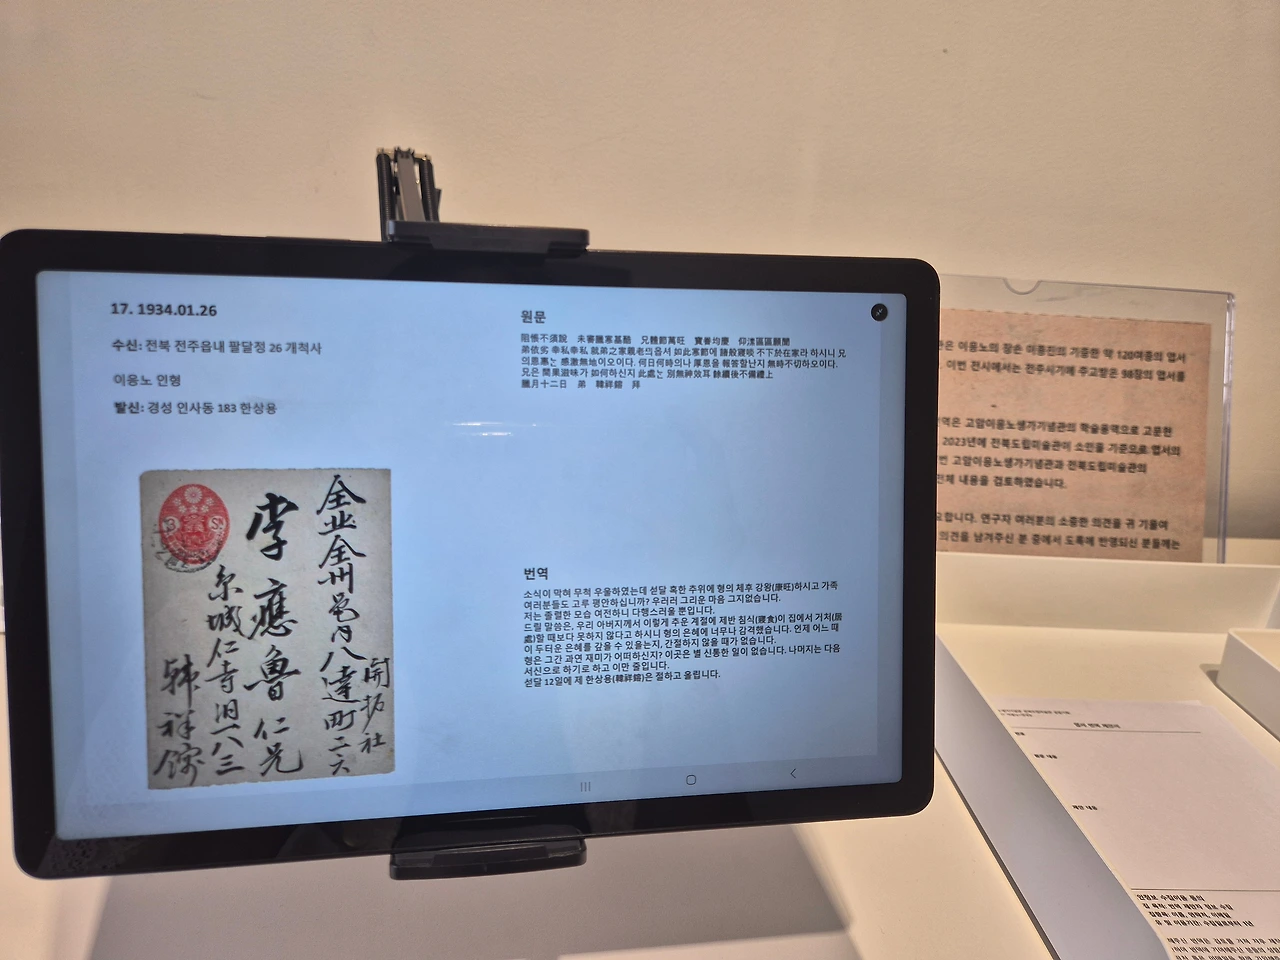 17. 1934.01.26
수신: 전북 전주읍내 팔달정 26 개척사
이응노 인형
발신: 경성 인사동 183 한상용
全北全州邑內八達町二六
開拓社
李應魯仁兄
京城仁寺洞一八三
韓祥鎔
원문
阻悵不須說 未審臘寒甚酷 兄體節萬旺 寶眷均慶 仰溸區區願聞
弟依劣 幸私幸私 就弟之家親老의옵서 如此寒節에 諸般寢啖 不下於在家라 하시니 兄
의恩惠는 感激無地이오이다. 何日何時의나 厚恩을 報答할난지 無時不切하오이다.
兄은 間果滋味가 如何하신지 此處는 別無神效耳 餘續後不備禮上
臘月十二日 弟 韓祥鎔 拜
번역
소식이 막혀 무척 우울하였는데 섣달 혹한 추위에 형의 체후 강왕(康旺)하시고 가족
여러분들도 고루 평안하십니까? 우러러 그리운 마음 그지없습니다.
저는 졸렬한 모습 여전하니 다행스러울 뿐입니다.
드릴 말씀은, 우리 아버지께서 이렇게 추운 계절에 제반 침식(寢食)이 집에서 거처(居
處)할 때보다 못하지 않다고 하시니 형의 은혜에 너무나 감격했습니다. 언제 어느 때
이 두터운 은혜를 갚을 수 있을는지, 간절하지 않을 때가 없습니다.
형은 그간 과연 재미가 어떠하신지? 이곳은 별 신통한 일이 없습니다. 나머지는 다음
서신으로 하기로 하고 이만 줄입니다.
섣달 12일에 제 한상용(韓祥鎔)은 절하고 올립니다.
관은 이응노의 장손 이종진의 기증한 약 120여종의 엽서
이번 전시에서는 전주시기에 주고받은 98장의 엽서를
역은 고암이응노생가기념관의 학술용역으로 고문헌
2023년에 전북도립미술관이 소인을 기준으로 엽서의
번 고암이응노생가기념관과 전북도립미술관의
전체 내용을 검토하였습니다.
요합니다. 연구자 여러분의 소중한 의견을 귀 기울여
의견을 남겨주신 분 중에서 도록에 반영되신 분들께는
제안 내용